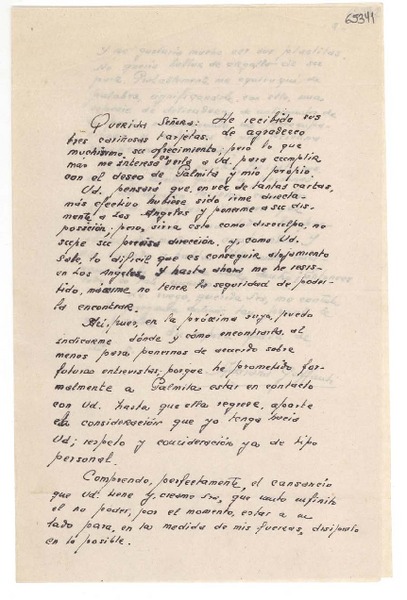 65341
Querida Señora: He recibido sus
tres cariñosas tarjetas. Le agradezco
muchísimo su ofrecimiento; pero lo que
mas me interesa es verla a Ud. para cumplir
con el deseo de Palmita y mío propio.
Ud. pensará que, en vez de tantas cartas,
más efectivo hubiese sido irme directa-
mente a Los Angeles y ponerme a su dis-
posición; pero, sirva esto como disculpa, no
supe su precisa dirección, y, como Ud.
sabe, lo difícil que es conseguir alojamiento
en Los Angeles, y hasta ahora me he resis-
tido, máxime no tener la seguridad de poder-
la encontrar.
Así, pues, en la próxima suya, pueda
indicarme dónde y cómo encontrarla, al
menos para ponernos de acuerdo sobre
futuras entrevistas; porque he prometido for-
malmente a Palmita estar en contacto
con Ud. hasta que ella regrese, aparte
la consideración que yo tengo hacia
Ud; respeto y consideración ya de tipo
personal.
Comprendo, perfectamente, el cansancio
que Ud. tiene y, créame Sra, que siento infinito
el no poder, por el momento, estar a su
lado para, en la medida de mis fuerzas, disiparlo
en lo posible.